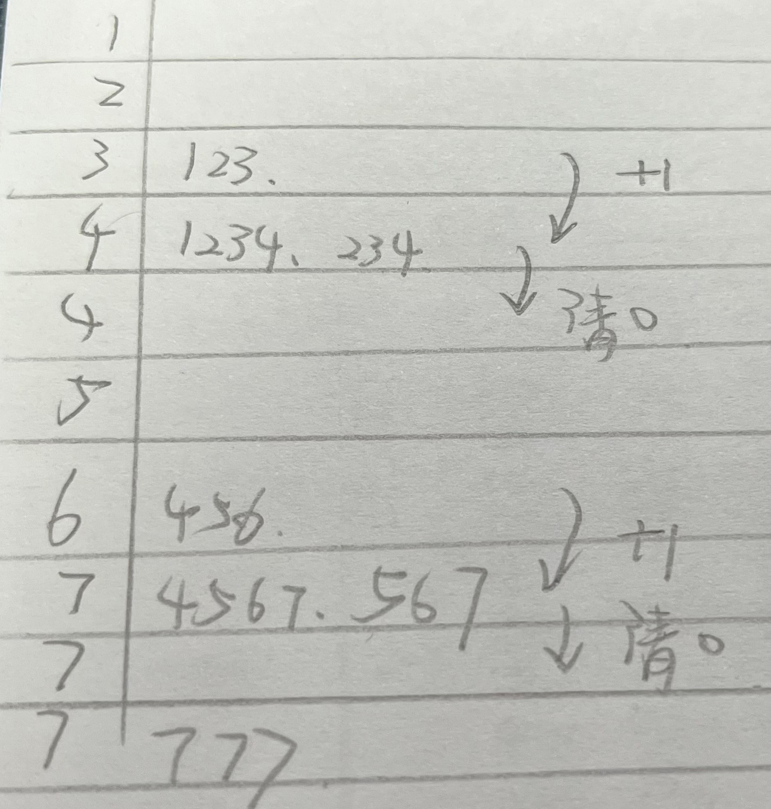 1
2
3 123. +1
4 1234、234
4 清0
5
6 456.
7 4567. 567 +1
7 清0
7 777